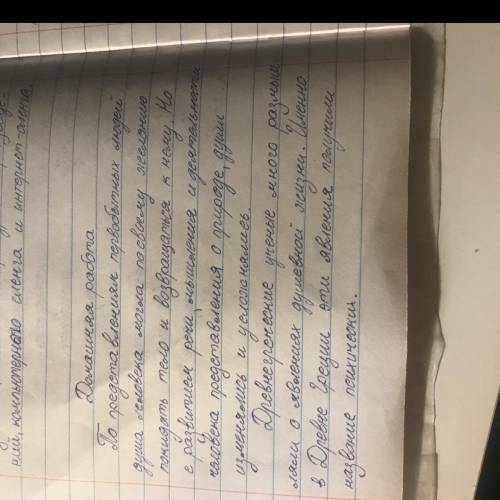 рий, компьютерного сленга и интернет-сленга.
Домашняя работа
По представлениям первобытных людей
душа человека могла по своему желанию
покидать тело и возвращаться к нему. Но
с развитием речи, мышления и деятельности
человека представления о природе, души
изменялись и усложнялись.
Древнегреческие ученые много размыш
ляли о явлениях душевной жизни. Именно
в Древне Греции эти явления получили
название психических.